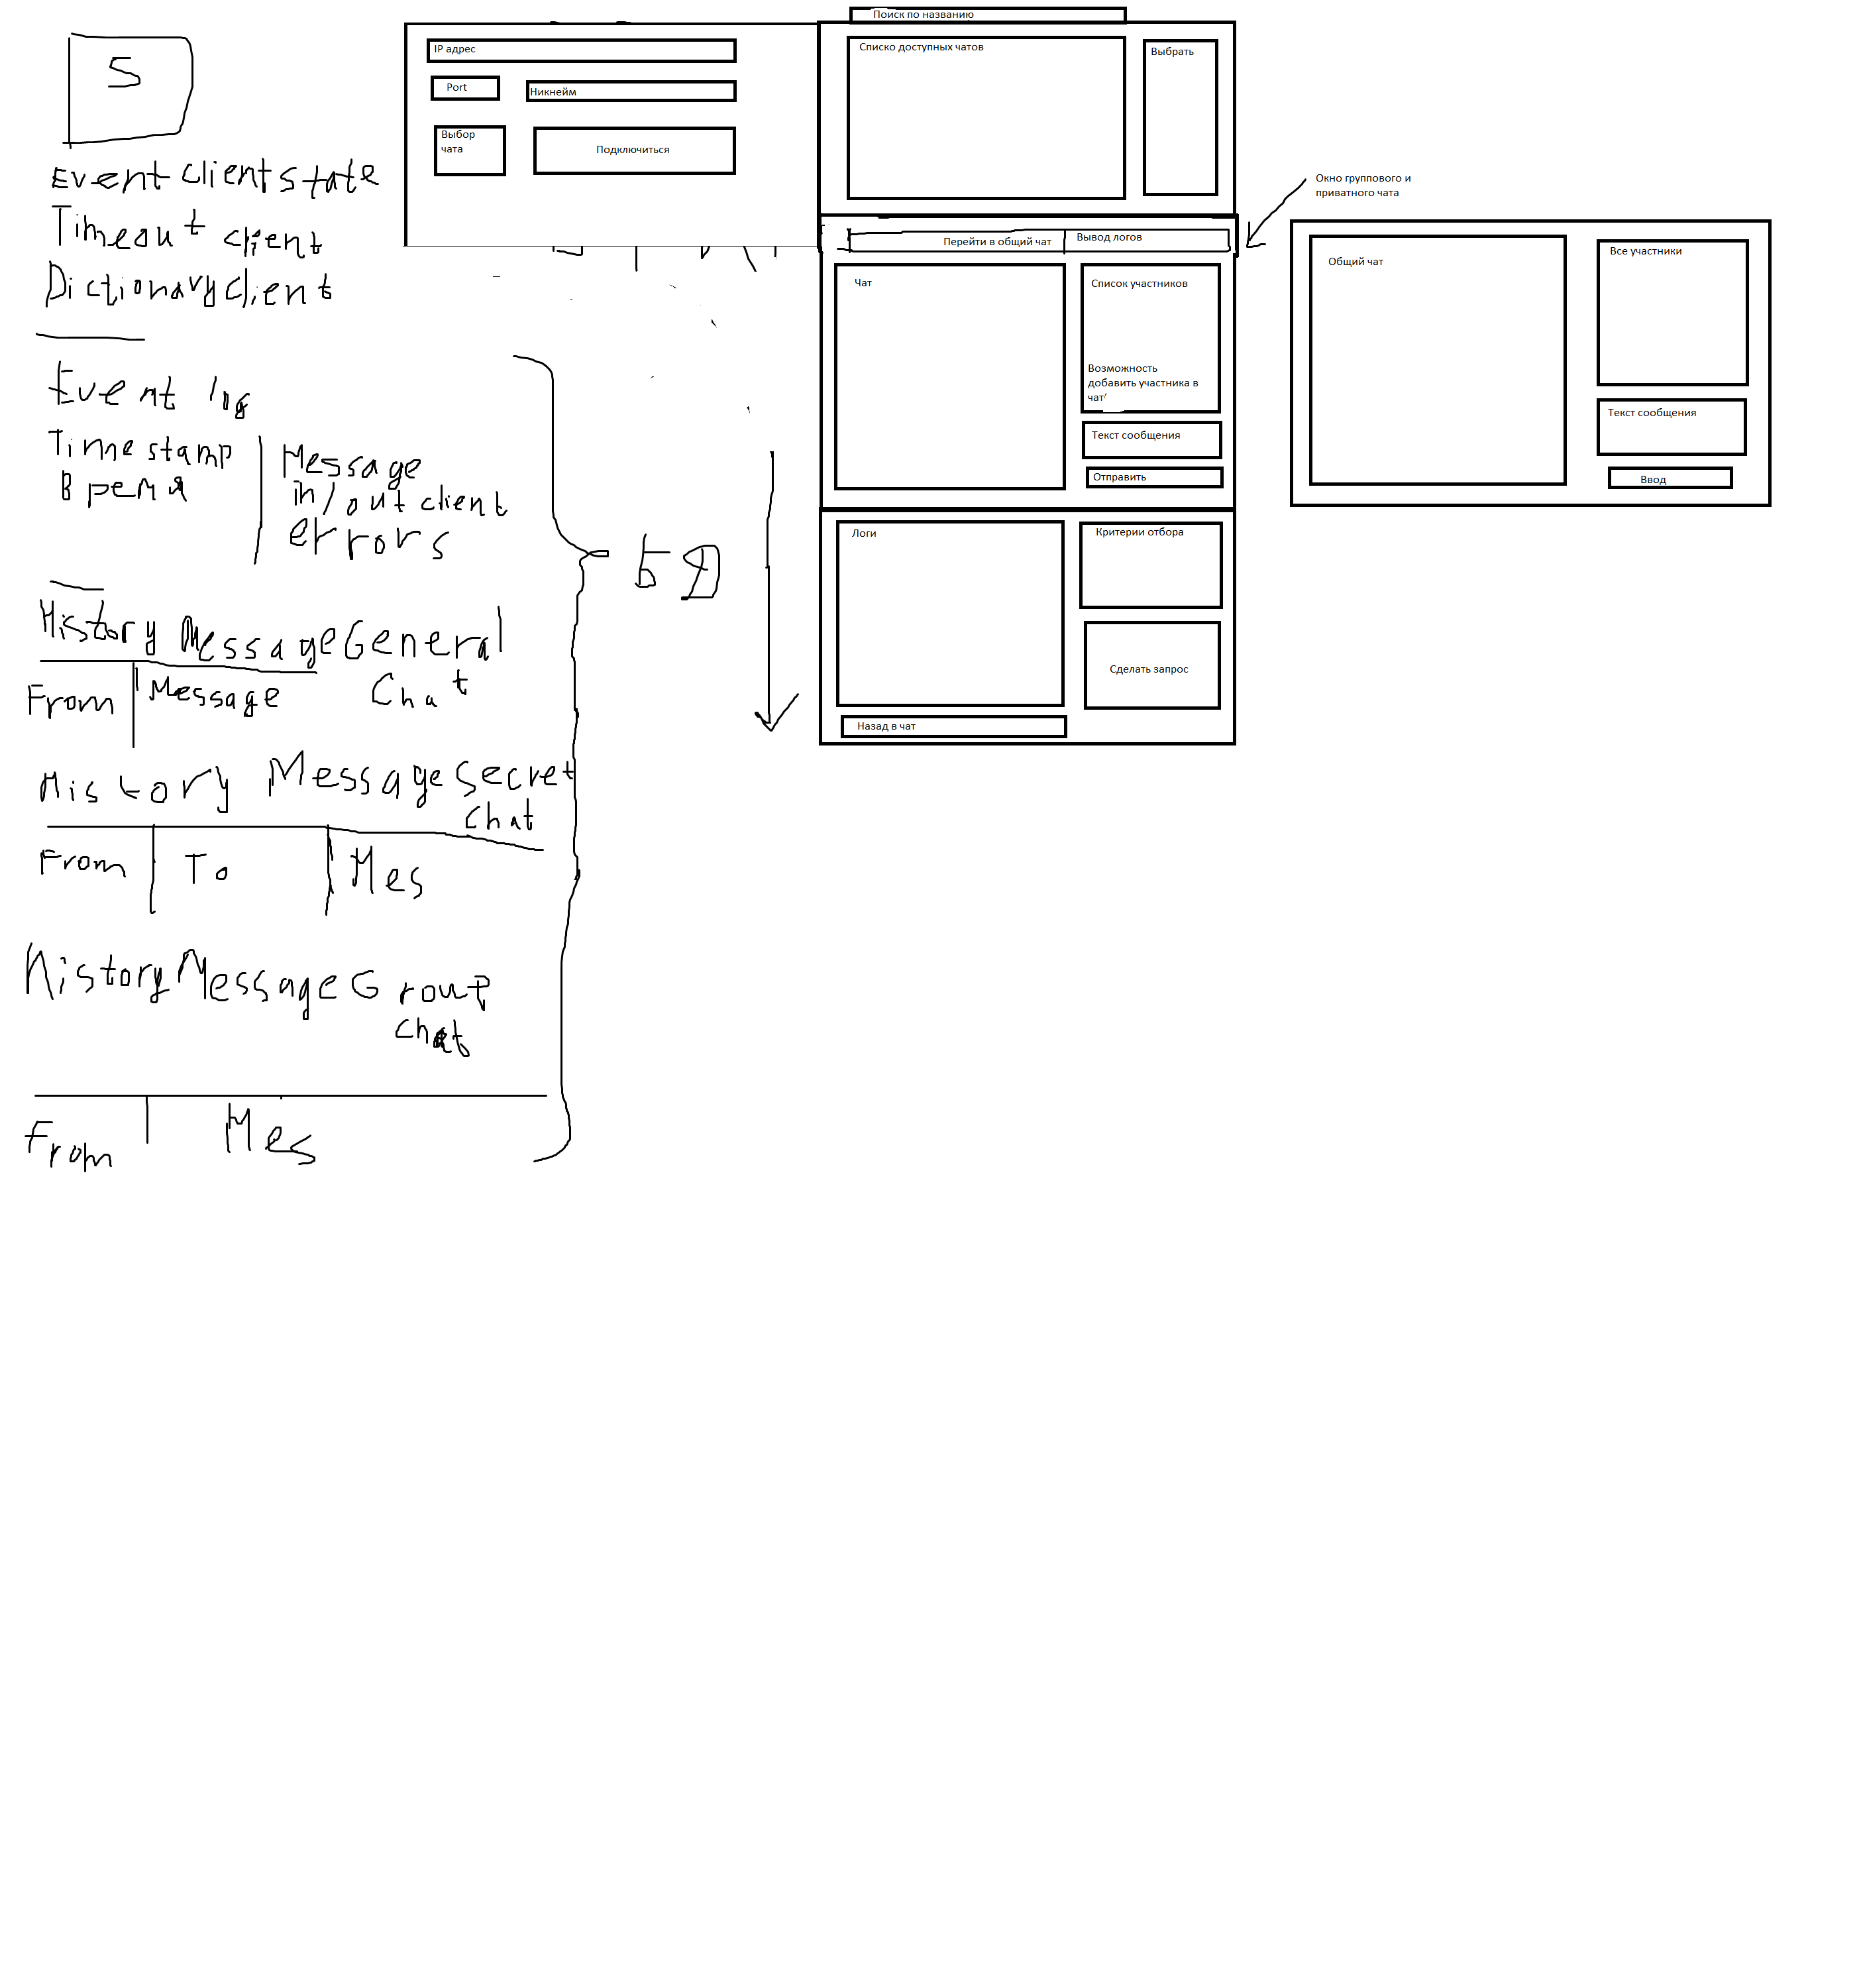 S
Event client state
Timeout client
DictionaryClient
Event log
Timestamp
Время
Message
in/out client
errors
БД
History MessageGeneral
Chat
From
Message
History MessageSecret
Chat
From
To
Mes
HistoryMessageGroup
chat
From
Mes
IP адрес
Port
Никнейм
Выбор
чата
Подключиться
Поиск по названию
Списко доступных чатов
Выбрать
Перейти в общий чат
Вывод логов
Чат
Список участников
Возможность
добавить участника в
чат
Текст сообщения
Отправить
Логи
Критерии отбора
Сделать запрос
Назад в чат
Окно группового и
приватного чата
Общий чат
Все участники
Текст сообщения
Ввод